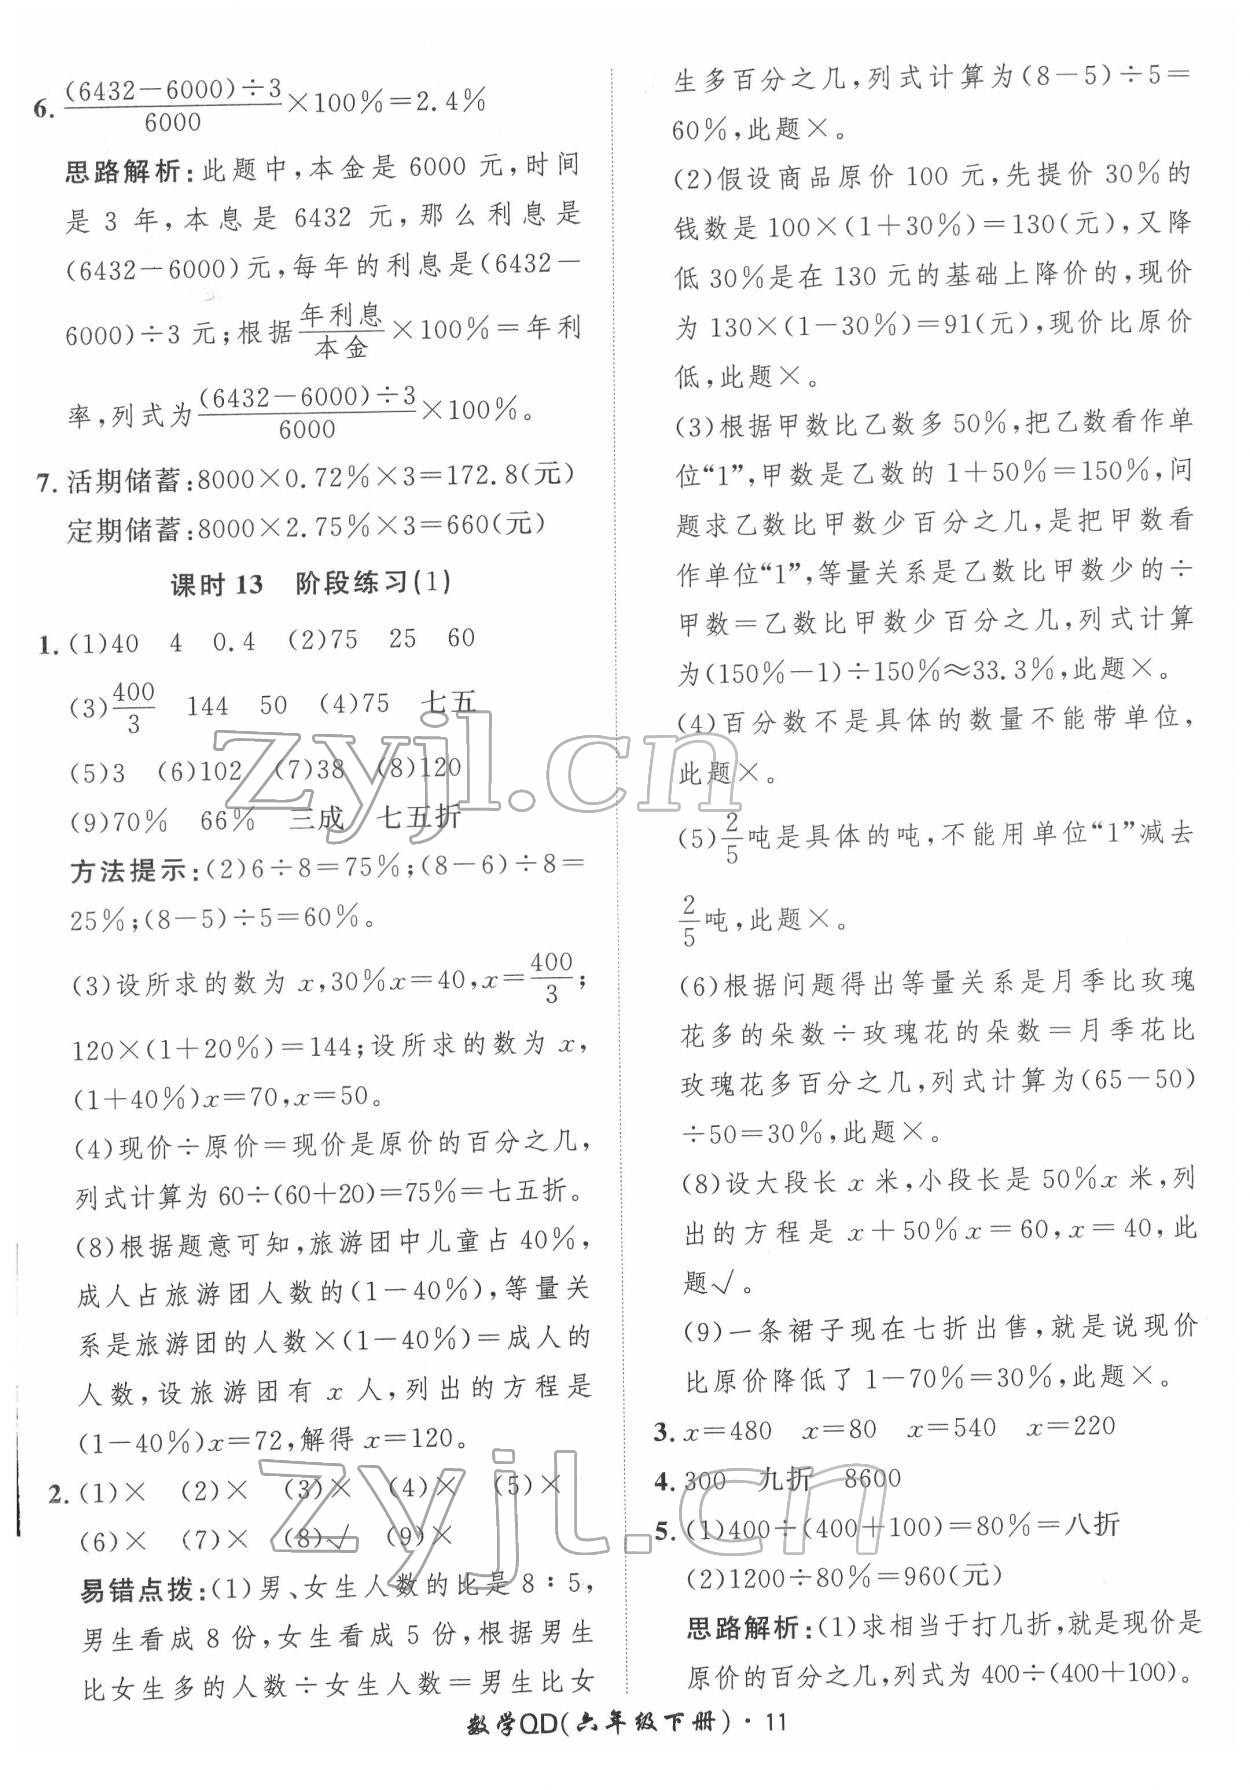 6. (6432-6000)÷3/6000×100%=2.4%
思路解析:此题中,本金是 6000 元,时间
是 3 年,本息是 6432 元,那么利息是
(6432-6000)元,每年的利息是(6432-
6000)÷3 元;根据年利息/本金×100%=年利
率,列式为(6432-6000)÷3/6000×100%。
7. 活期储蓄:8000×0.72%×3=172.8(元)
定期储蓄:8000×2.75%×3=660(元)
课时 13 阶段练习(1)
1. (1)40 4 0.4 (2)75 25 60
(3)400/3 144 50 (4)75 七五
(5)3 (6)102 (7)38 (8)120
(9)70% 66% 三成 七五折
方法提示:(2)6÷8=75%;(8-6)÷8=
25%;(8-5)÷5=60%。
(3)设所求的数为 x,30%x=40,x=400/3;
120×(1+20%)=144;设所求的数为 x,
(1+40%)x=70,x=50。
(4)现价÷原价=现价是原价的百分之几,
列式计算为 60÷(60+20)=75%=七五折。
(8)根据题意可知,旅游团中儿童占 40%,
成人占旅游团人数的(1-40%),等量关
系是旅游团的人数×(1-40%)=成人的
人数,设旅游团有 x 人,列出的方程是
(1-40%)x=72,解得 x=120。
2. (1)× (2)× (3)× (4)× (5)×
(6)× (7)× (8)√ (9)×
易错点拨:(1)男、女生人数的比是 8∶5,
男生看成 8 份,女生看成 5 份,根据男生
比女生多的人数÷女生人数=男生比女
生多百分之几,列式计算为(8-5)÷5=
60%,此题×。
(2)假设商品原价 100 元,先提价 30%的
钱数是 100×(1+30%)=130(元),又降
低 30%是在 130 元的基础上降价的,现价
为 130×(1-30%)=91(元),现价比原价
低,此题×。
(3)根据甲数比乙数多 50%,把乙数看作单
位“1”,甲数是乙数的 1+50%=150%,问
题求乙数比甲数少百分之几,是把甲数看
作单位“1”,等量关系是乙数比甲数少的÷
甲数=乙数比甲数少百分之几,列式计算
为(150%-1)÷150%≈33.3%,此题×。
(4)百分数不是具体的数量不能带单位,
此题×。
(5)2/5吨是具体的吨,不能用单位“1”减去
2/5吨,此题×。
(6)根据问题得出等量关系是月季比玫瑰
花多的朵数÷玫瑰花的朵数=月季花比
玫瑰花多百分之几,列式计算为(65-50)
÷50=30%,此题×。
(8)设大段长 x 米,小段长是 50%x 米,列
出的方程是 x+50%x=60,x=40,此
题√。
(9)一条裙子现在七折出售,就是说现价
比原价降低了 1-70%=30%,此题×。
3. x=480 x=80 x=540 x=220
4. 300 九折 8600
5. (1)400÷(400+100)=80%=八折
(2)1200÷80%=960(元)
思路解析:(1)求相当于打几折,就是现价是
原价的百分之几,列式为 400÷(400+100)。
数学QD(六年级下册)·11
zyjl.cn
zyjl.cn